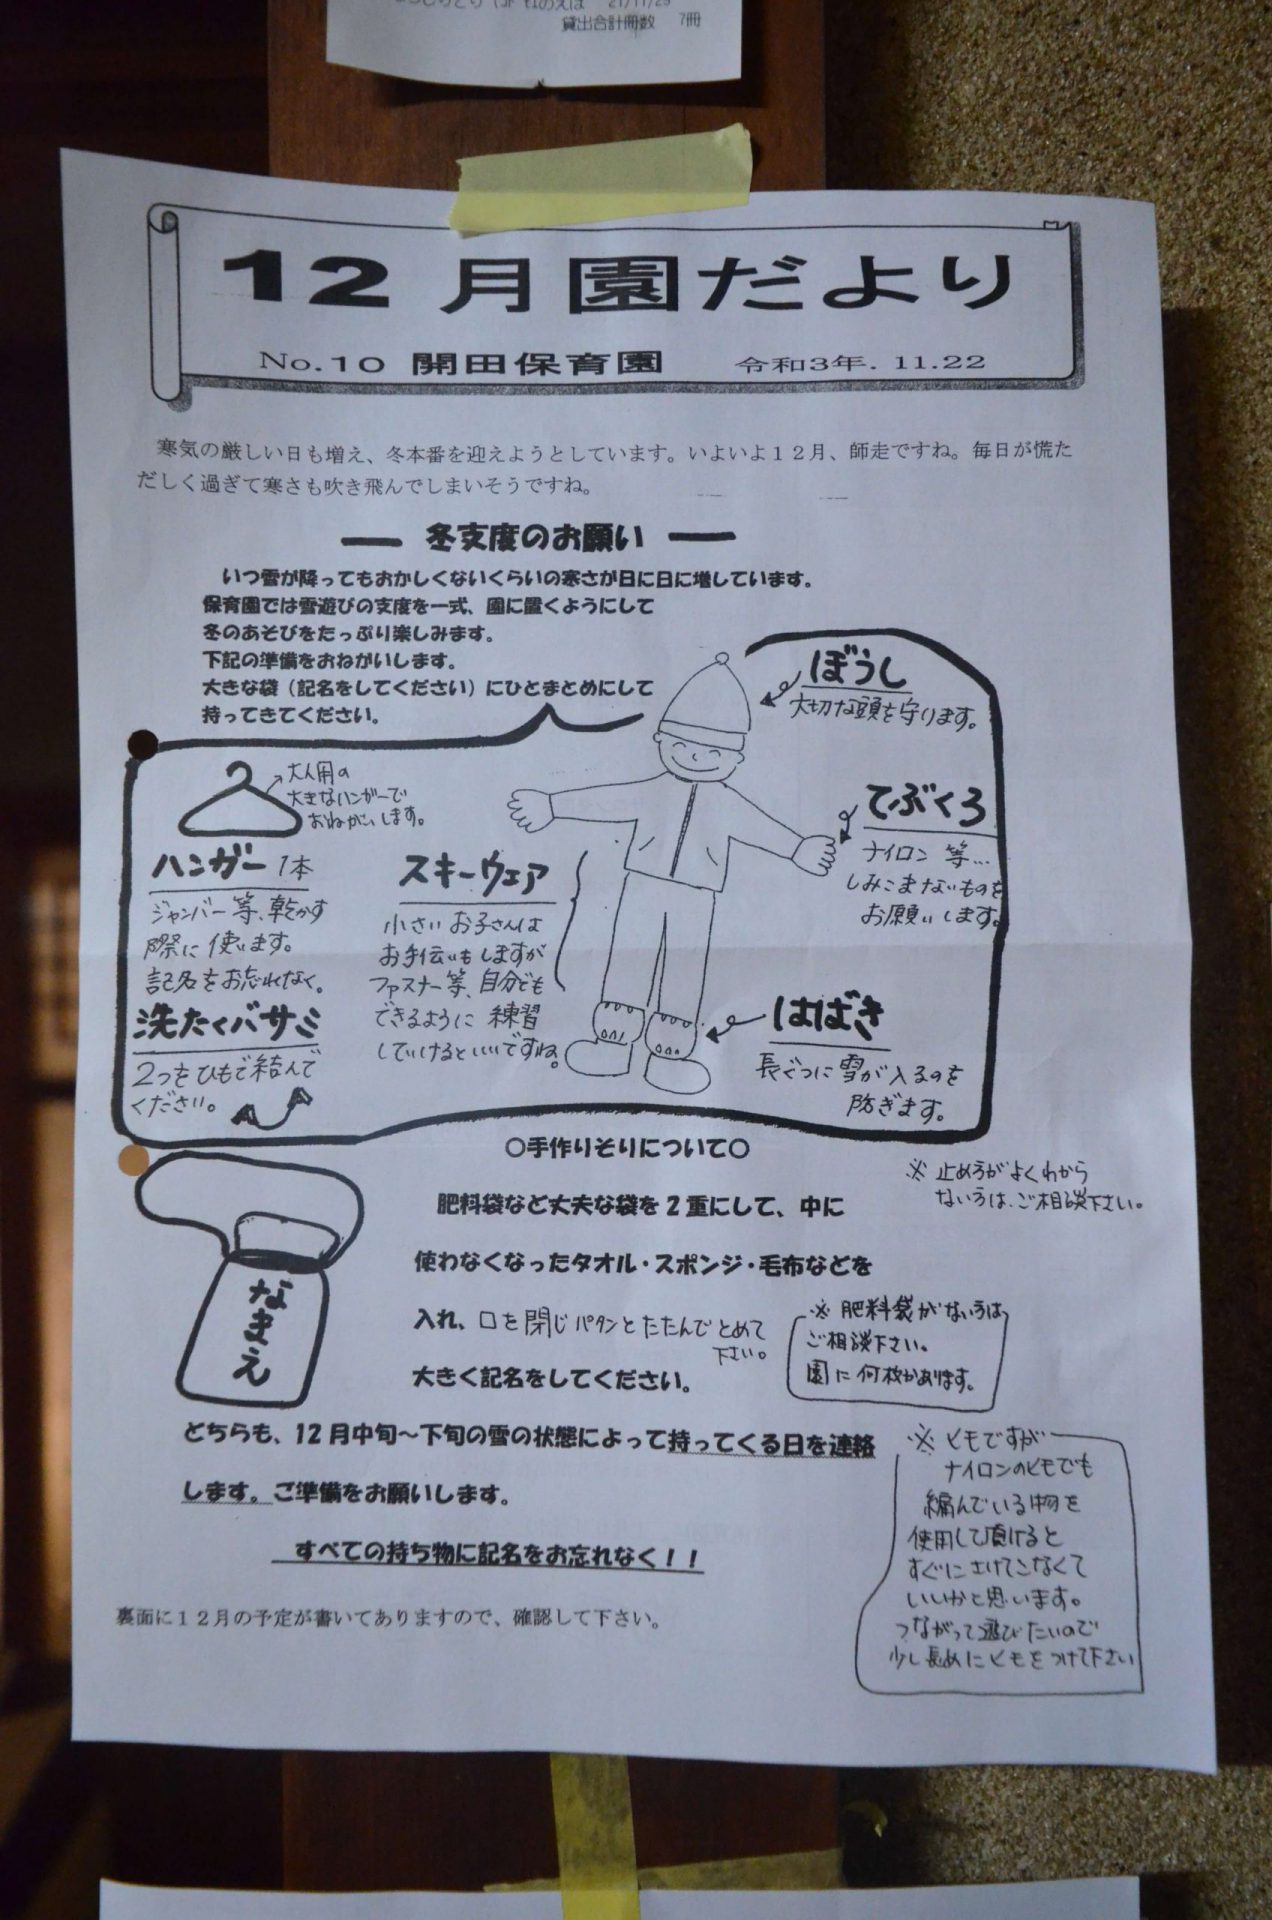 貸出合計冊数 7冊
12月園だより
No.10 開田保育園 令和3年.11.22
寒気の厳しい日も増え、冬本番を迎えようとしています。いよいよ12月、師走ですね。毎日が慌た
だしく過ぎて寒さも吹き飛んでしまいそうですね。
冬支度のお願い
いつ雪が降ってもおかしくないくらいの寒さが日に日に増しています。
保育園では雪遊びの支度を一式、園に置くようにして
冬のあそびをたっぷり楽しみます。
下記の準備をおねがいします。
大きな袋（記名をしてください）にひとまとめにして
持ってきてください。
ぼうし
大切な頭を守ります。
大人用の
大きなハンガーで
おねがいします。
てぶくろ
ナイロン 等…
しみこまないものを
お願いします。
ハンガー 1本
ジャンバー等、乾かす
際に使います。
記名をお忘れなく。
スキーウェア
小さいお子さんは
お手伝いもしますが
ファスナー等、自分でも
できるように練習
していけるといいですね。
洗たくバサミ
2つをひもで結んで
ください。
はばき
長ぐつに雪が入るのを
防ぎます。
○手作りそりについて○
※ 止め方がよくわから
ない方は、ご相談下さい。
肥料袋など丈夫な袋を2重にして、中に
使わなくなったタオル・スポンジ・毛布などを
入れ、口を閉じパタンとたたんでとめて
下さい。
大きく記名をしてください。
なまえ
※ 肥料袋がない方は
ご相談下さい。
園に何枚かあります。
どちらも、12月中旬～下旬の雪の状態によって持ってくる日を連絡
します。ご準備をお願いします。
すべての持ち物に記名をお忘れなく！！
※ ヒモですが
ナイロンのヒモでも
編んでいる物を
使用して頂けると
すぐにさけてこなくて
いいかと思います。
つながって遊びたいので
少し長めにヒモをつけて下さい
裏面に12月の予定が書いてありますので、確認して下さい。